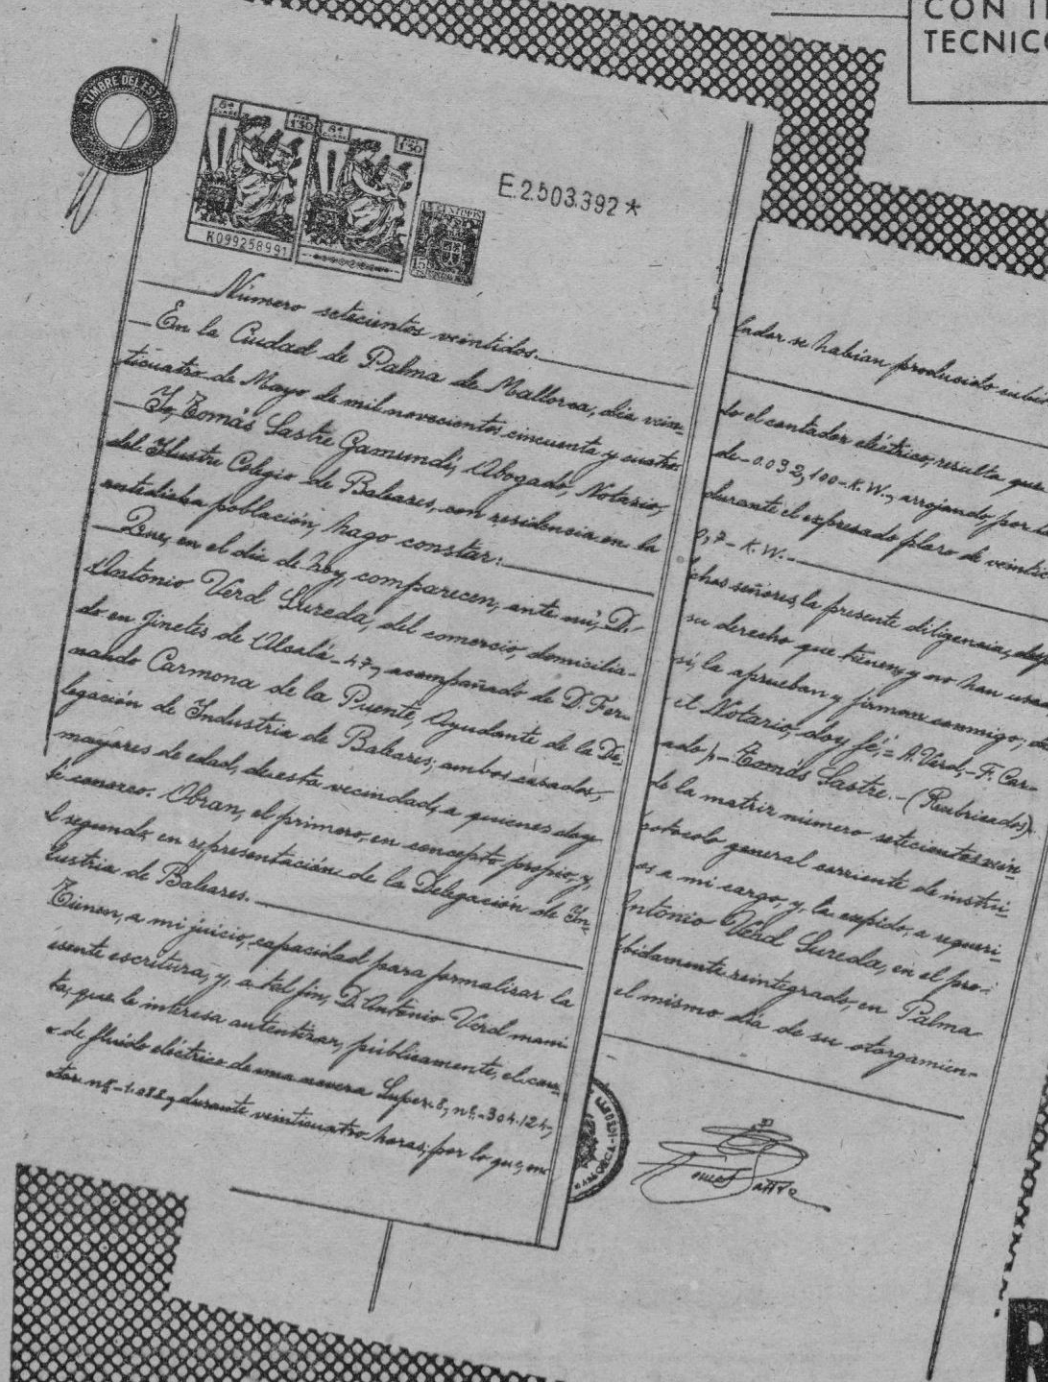 CON
TECNICO
TIMBRE DEL ESTADO
8ª 1'50 8ª 1'50
E.2.503.392*
K099258991
15 CENTIMOS
Número setecientos veintidos.
En la Ciudad de Palma de Mallorca, día vein-
ticuatro de Mayo de mil novecientos cincuenta y cuatro.
Yo, Tomás Sastre Gamundí, Abogado, Notario,
del Ilustre Colegio de Baleares, con residencia en la
antedicha población, hago constar:
Que, en el día de hoy, comparecen, ante mí, D.
Antonio Verd Sureda, del comercio, domicilia-
do en Jinetes de Alcalá-47, acompañado de D. Fer-
nando Carmona de la Puente, Ayudante de la De-
legación de Industria de Baleares; ambos casados,
mayores de edad, de esta vecindad, a quienes doy
fe conozco. Obran, el primero, en concepto propio, y,
el segundo, en representación de la Delegación de In-
dustria de Baleares.
Tienen, a mi juicio, capacidad para formalizar la
esente escritura, y, a tal fin, D. Antonio Verd mani
ta, que le interesa autentizar, públicamente, el con-
o de fluido eléctrico de una nevera Super-8, nº-304.124,
durante veinticuatro horas; por lo que, en
lador se habían producido
do el contador eléctrico, resulta que
de -0.032,100-K.W., arrojando, por
durante el expresado plazo de
0,7-K.W.-
chos señores, la presente diligencia,
su derecho que tienen, y no han usado
sí, la aprueban y firman conmigo;
el Notario, doy fé, = A. Verd, - F. Car-
ado,- Tomás Sastre.- (Rubricados).
de la matriz número setecientos vein-
potocolo general corriente de instru-
os a mi cargo, y, la expido, a requeri-
Antonio Verd Sureda, en el pre-
bidamente reintegrado, en Palma
el mismo día de su otorgamien-
Tomás Sastre
R